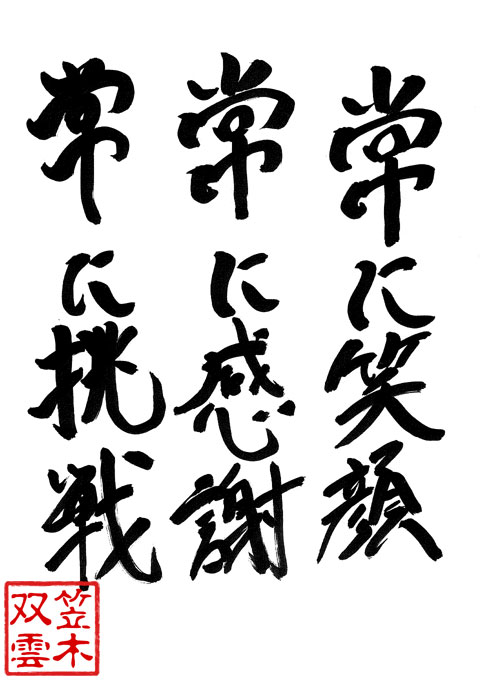 常に笑顔
常に感謝
常に挑戦
笠木
双雲